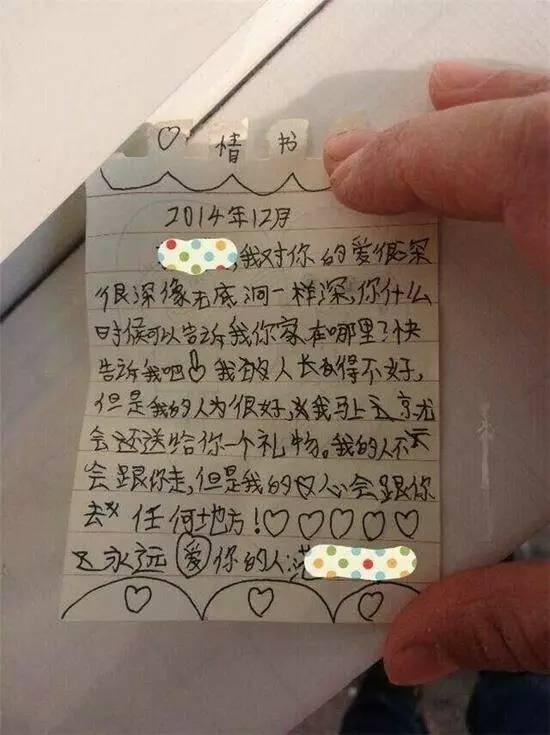 ♡ 情 书
2014年12月
,我对你的爱很深
很深像无底洞一样深,你什么
时候可以告诉我你家在哪里?快
告诉我吧 我的人长的得不好,
但是我的人为很好,我马上
会还送给你一个礼物。我的人不
会跟你走,但是我的心会跟你
去 任何地方!♡♡♡♡♡
永远爱你的人:范
♡ ♡ ♡